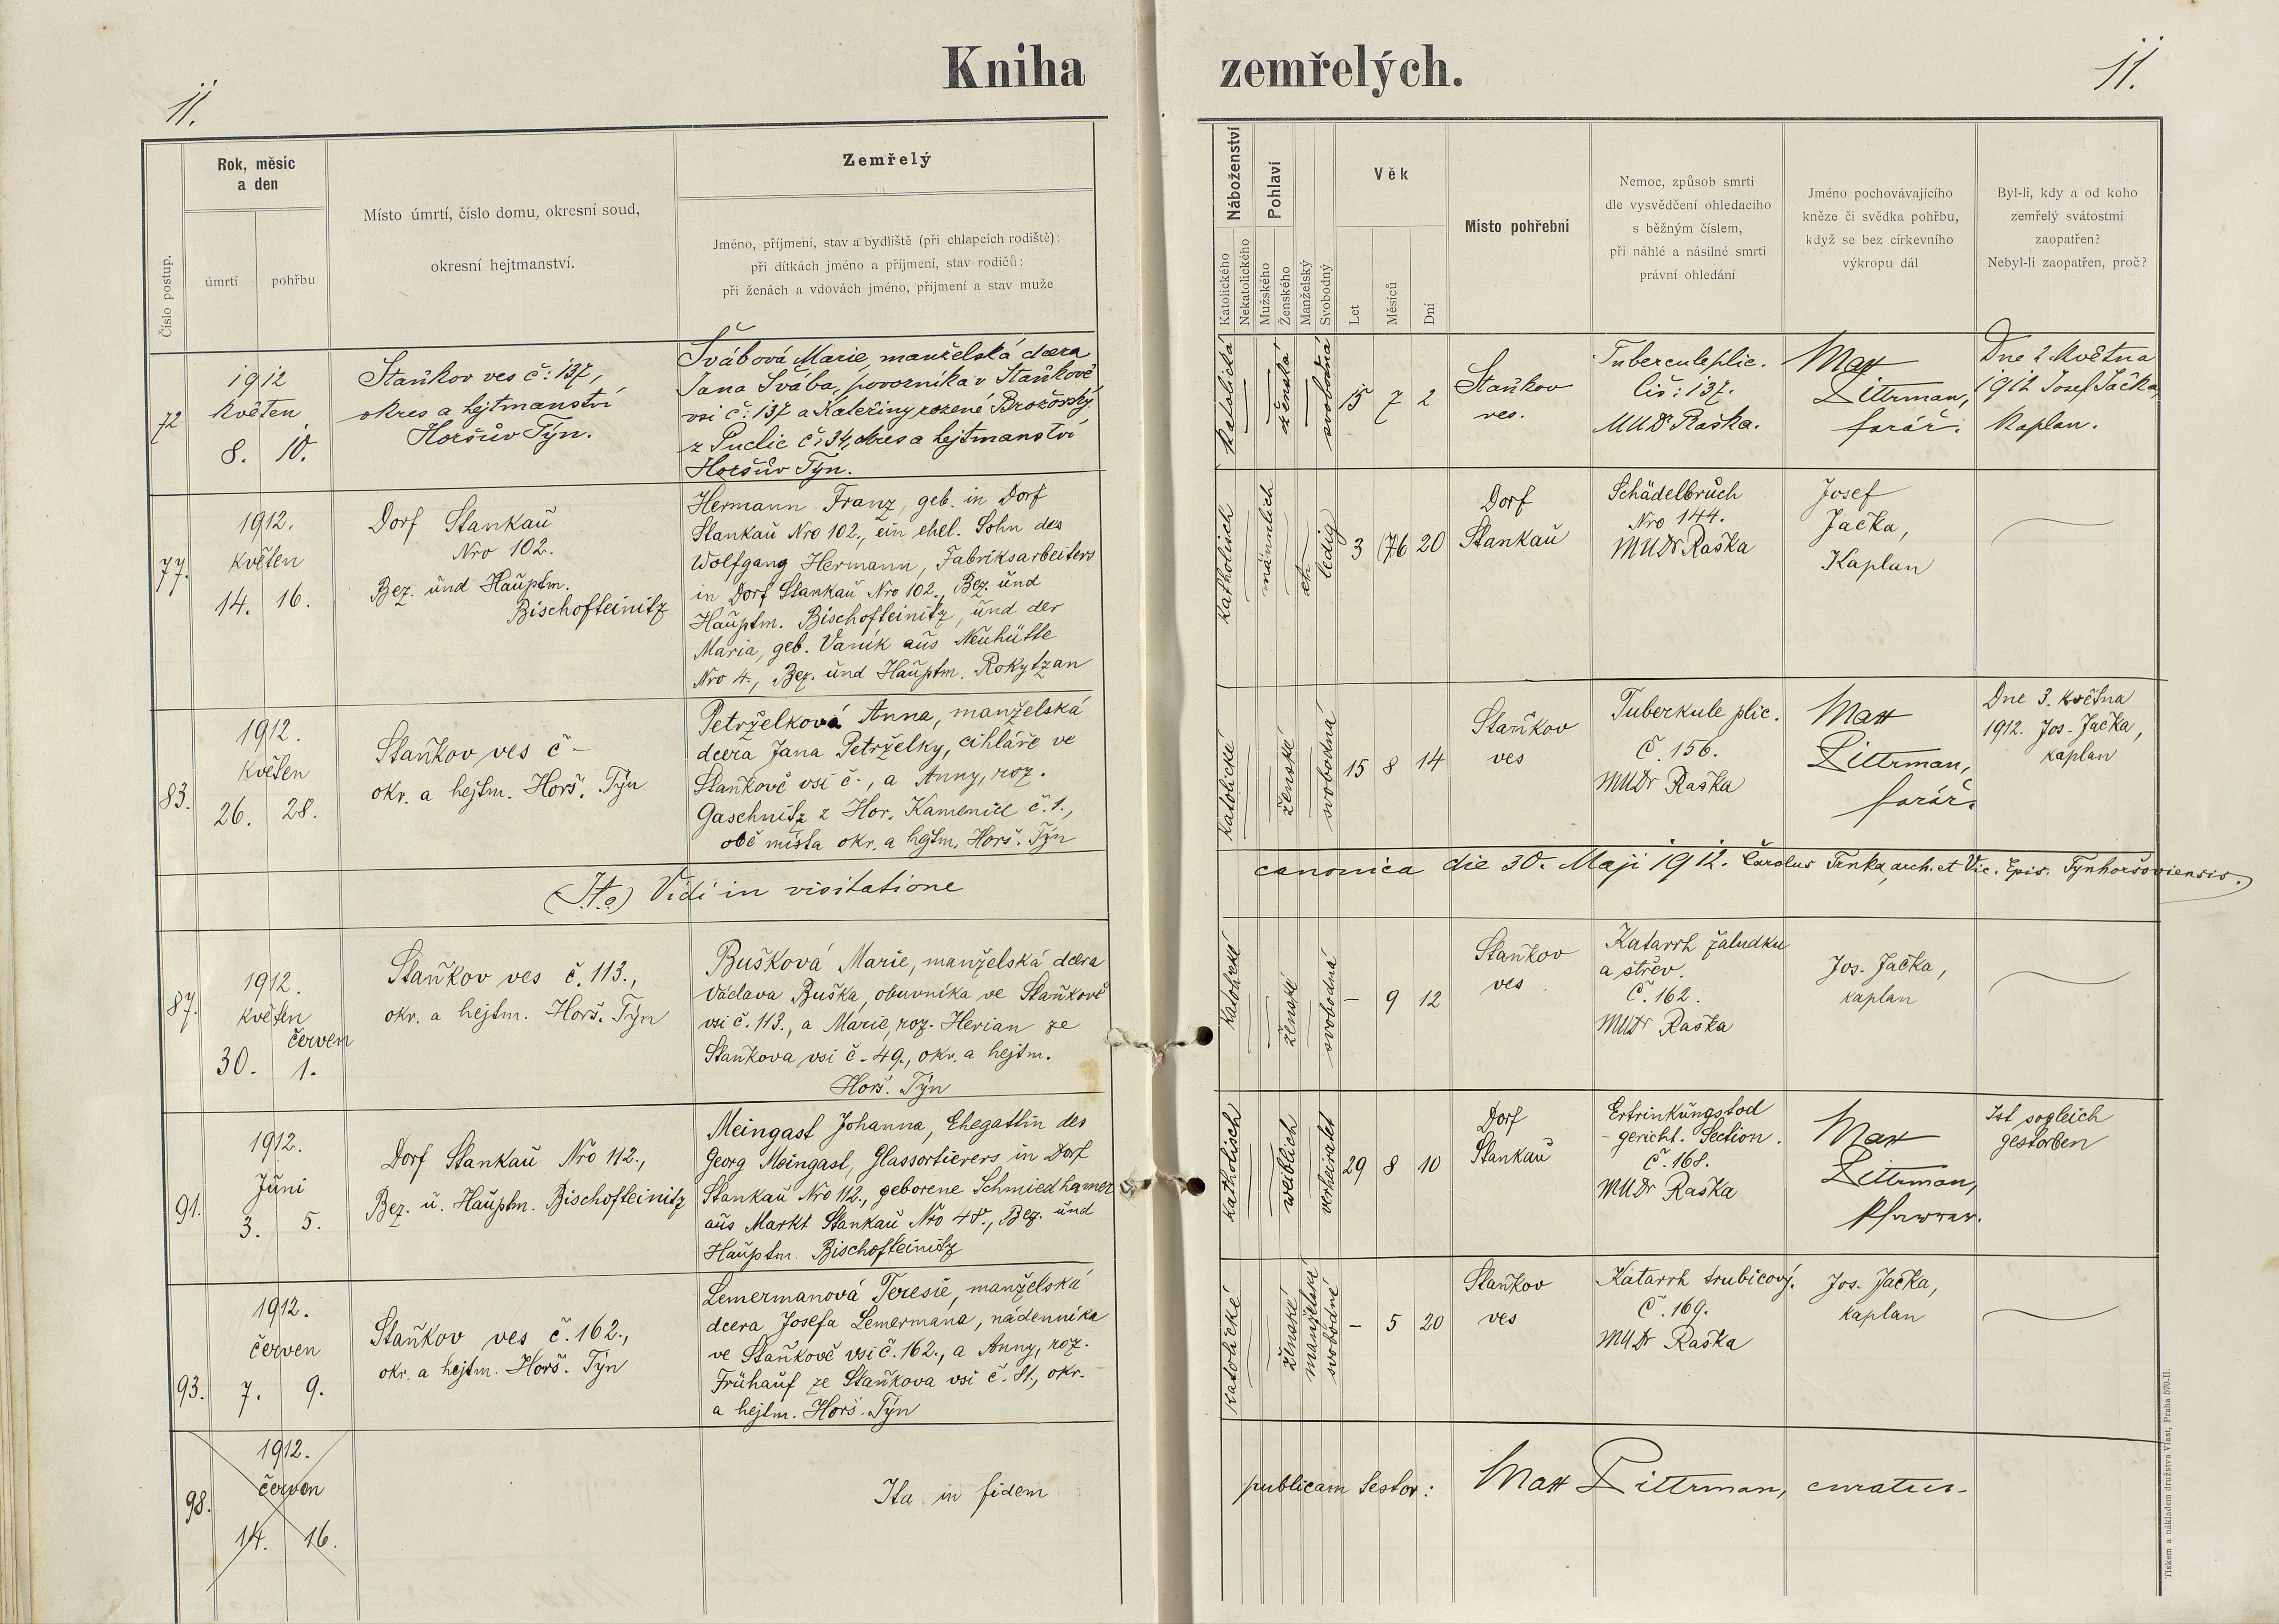 Kniha zemřelých.
11.
11.
Číslo postup.
Rok, měsíc
a den
úmrtí
pohřbu
Místo úmrtí, číslo domu, okresní soud,
okresní hejtmanství.
Zemřelý
Jméno, příjmení, stav a bydliště (při chlapcích rodiště):
při dítkách jméno a příjmení, stav rodičů:
při ženách a vdovách jméno, příjmení a stav muže
Náboženství
Katolického
Nekatolického
Pohlaví
Mužského
Ženského
Manželský
Svobodný
Věk
Let
Měsíců
Dní
Místo pohřební
Nemoc, způsob smrti
dle vysvědčení ohledacího
s běžným číslem,
při náhlé a násilné smrti
právní ohledání
Jméno pochovávajícího
kněze či svědka pohřbu,
když se bez církevního
výkropu dál
Byl-li, kdy a od koho
zemřelý svátostmi
zaopatřen?
Nebyl-li zaopatřen, proč?
72
1912
květen
8. 10.
Staňkov ves č: 137,
okres a hejtmanství
Horšův Týn.
Švábová Marie, manželská dcera
Jana Švába, povozníka v Staňkově
vsi č: 137 a Kateřiny rozené Brožovský
z Puclic č: 34, okres a hejtmanství
Horšův Týn.
katolická
ženská
svobodná
15 7 2
Staňkov
ves.
Tubercule plic.
Čís: 137.
MUDr Raška.
Max
Littrman,
farář.
Dne 2. Května
1912 Josef Jačka,
Kaplan.
77.
1912.
květen
14. 16.
Dorf Stankau
Nro 102.
Bez. und Hauptm.
Bischofteinitz
Hermann Franz, geb. in Dorf
Stankau Nro 102., ein ehel. Sohn des
Wolfgang Hermann, Fabriksarbeiters
in Dorf Stankau Nro 102., Bez. und
Hauptm. Bischofteinitz, und der
Maria, geb. Vaník aus Neuhütte
Nro 4., Bez. und Hauptm. Rokytzan
katholisch
männnlich
eh
ledig
3 (7 6 20
Dorf
Stankau
Schädelbruch
Nro 144.
MUDr Raška
Josef
Jačka,
Kaplan
83.
1912.
květen
26. 28.
Staňkov ves č –
okr. a hejtm. Horš. Týn
Petrželková Anna, manželská
dcera Jana Petrželky, cihláře ve
Staňkově vsi č –, a Anny, roz.
Gaschnitz z Hor. Kamenice č. 1.,
obě místa okr. a hejtm. Horš. Týn
katolické
ženské
svobodná
15 8 14
Staňkov
ves
Tuberkule plic.
Č. 156.
MUDr Raška
Max
Littrman,
farář.
Dne 3. května
1912. Jos. Jačka,
kaplan
Vidi in visitatione canonica die 30. Maji 1912. Carolus Trnka, arch. et Vic. Epis. Tynhoršoviensis.
87.
1912.
květen
červen
30. 1.
Staňkov ves č. 113.,
okr. a hejtm. Horš. Týn
Bušková Marie, manželská dcera
Václava Buška, obuvníka ve Staňkově
vsi č. 113., a Marie, roz. Herian ze
Staňkova vsi č. 49., okr. a hejtm.
Horš. Týn
katolické
ženské
svobodná
– 9 12
Staňkov
ves
Katarrh žaludku
a střev.
Č. 162.
MUDr Raška
Jos. Jačka,
kaplan
91.
1912.
Juni
3. 5.
Dorf Stankau Nro 112.,
Bez. u. Hauptm. Bischofteinitz
Meingast Johanna, Ehegattin des
Georg Meingast, Glassortierers in Dorf
Stankau Nro 112., geborene Schmiedhamer
aus Markt Stankau Nro 48., Bez. und
Hauptm. Bischofteinitz
katholisch
weiblich
verheiratet
29 8 10
Dorf
Stankau
Ertrinkungstod
– gericht. Section.
Č. 168.
MUDr Raška
Max
Littrman,
Pfarrer.
Ist sogleich
gestorben
93.
1912.
červen
7. 9.
Staňkov ves č. 162.,
okr. a hejtm. Horš. Týn
Lemermanová Teresie, manželská
dcera Josefa Lemermana, nádenníka
ve Staňkově vsi č. 162., a Anny, roz.
Frühauf ze Staňkova vsi č. 81., okr.
a hejtm. Horš. Týn
katolické
ženské
manželská
svobodné
– 5 20
Staňkov
ves
Katarrh trubicový.
Č. 169.
MUDr Raška
Jos. Jačka,
kaplan
98.
1912.
červen
14. 16.
Ita in fidem publicam testor: Max Littrman, curatus.
Tiskem a nákladem družstva Vlast, Praha 570-II.